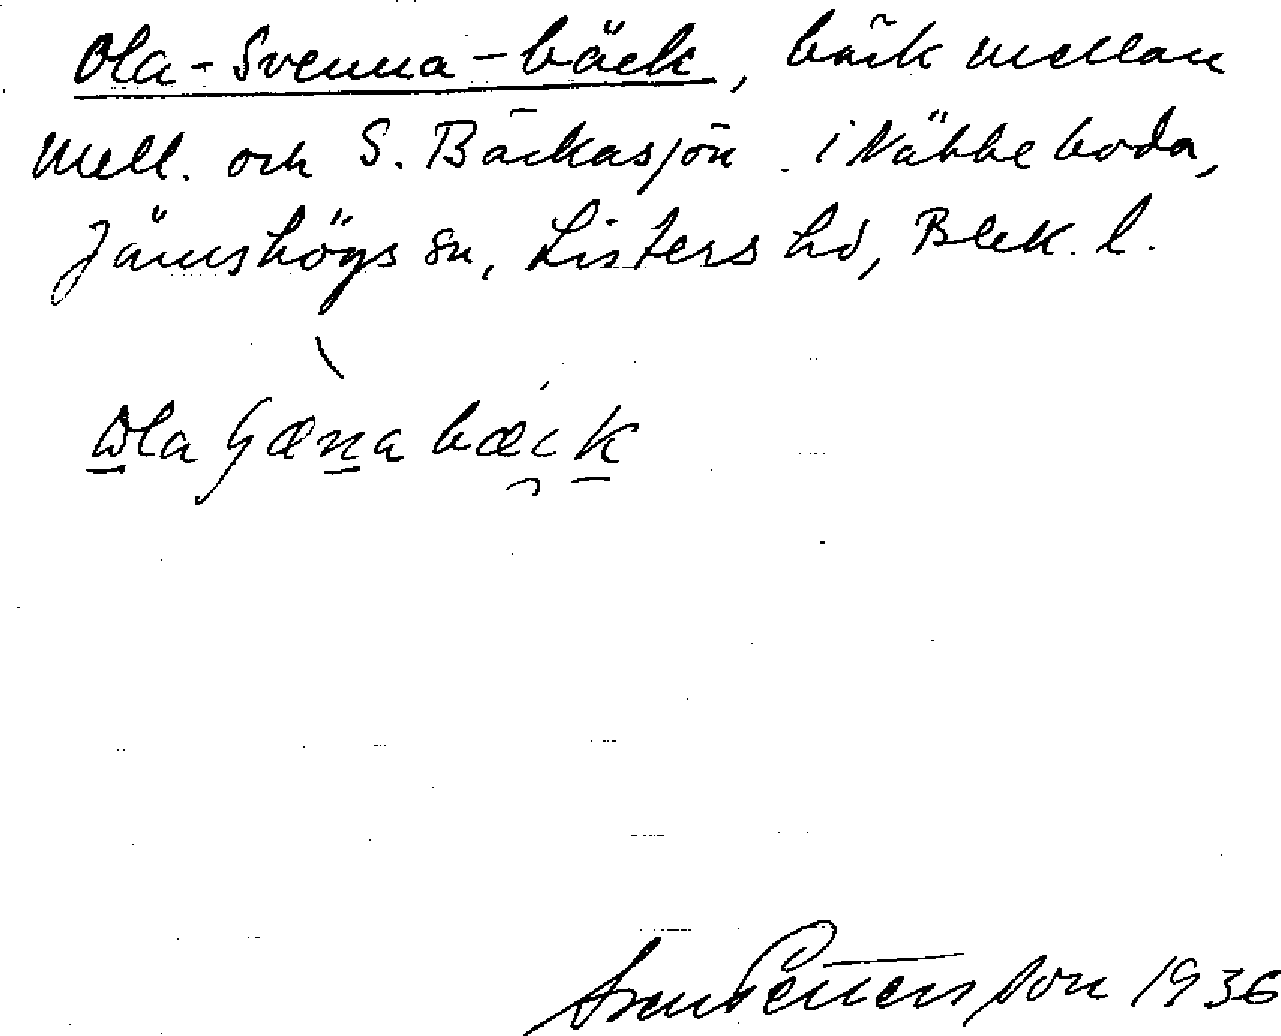 Ola-Svenna-bäck, bäck mellan
Mell. och S. Bäckasjön i Näbbeboda,
Jämshögs sn, Listers hd, Blek. l.
bæi̯k
Sven Pettersson 1936